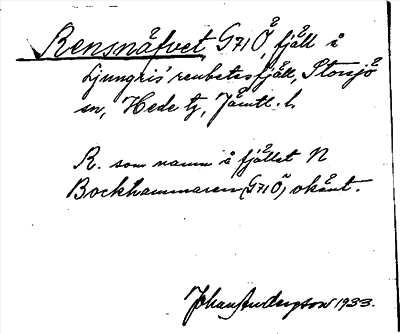 Rensnåfvet G71Ö, fjäll å
Ljungris' renbetesfjäll, Storsjö
sn, Hede tg, Jämtl. l.
R. som namn å fjället N
Bockhammaren (G71Ö) okänt.
Johan Andersson 1933.